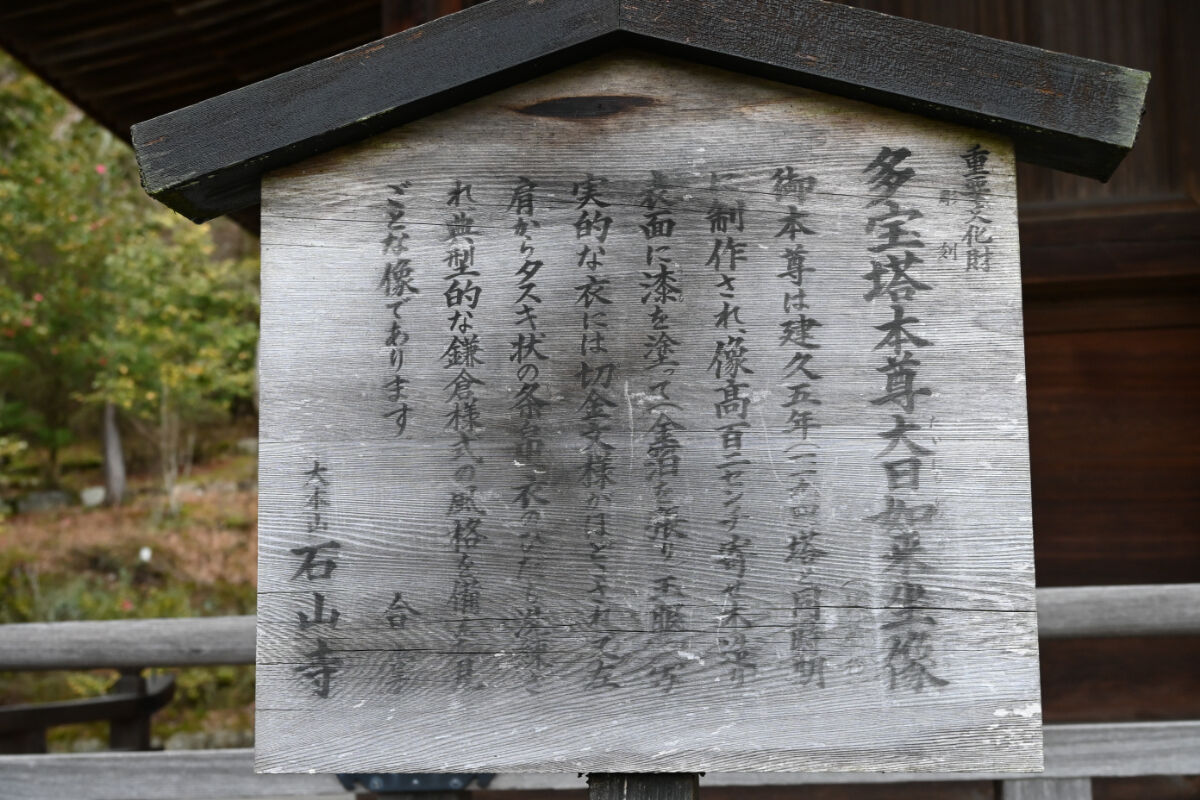 重要文化財
彫刻
多宝塔本尊大日如来坐像
御本尊は建久五年(一一九四)塔と同時期
に制作され、像高百二センチ寄せ木造り
表面に漆を塗って金泊を張り玉眼、写
実的な衣には切金文様がほどされて左
肩からタスキ状の条帛、衣のひだ
れ典型的な鎌倉様式の風格を備えた見
ごとな像であります
合掌
大本山石山寺